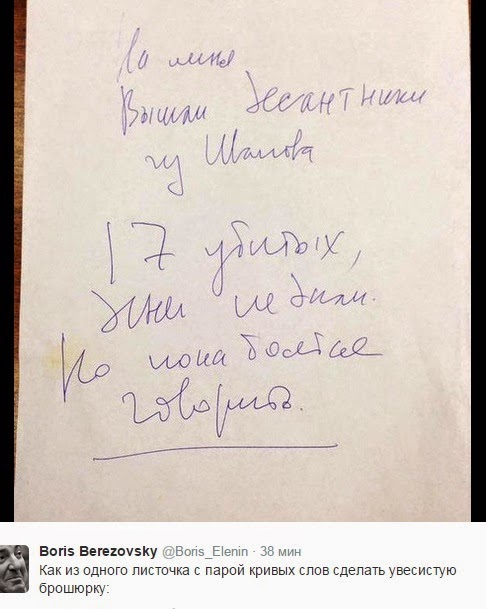 На меня
Вышли десантники
из Иванова
17 убитых,
Дени не дали.
Но пока боятся
говорить.
Boris Berezovsky @Boris_Elenin · 38 мин
Как из одного листочка с парой кривых слов сделать увесистую
брошюрку: